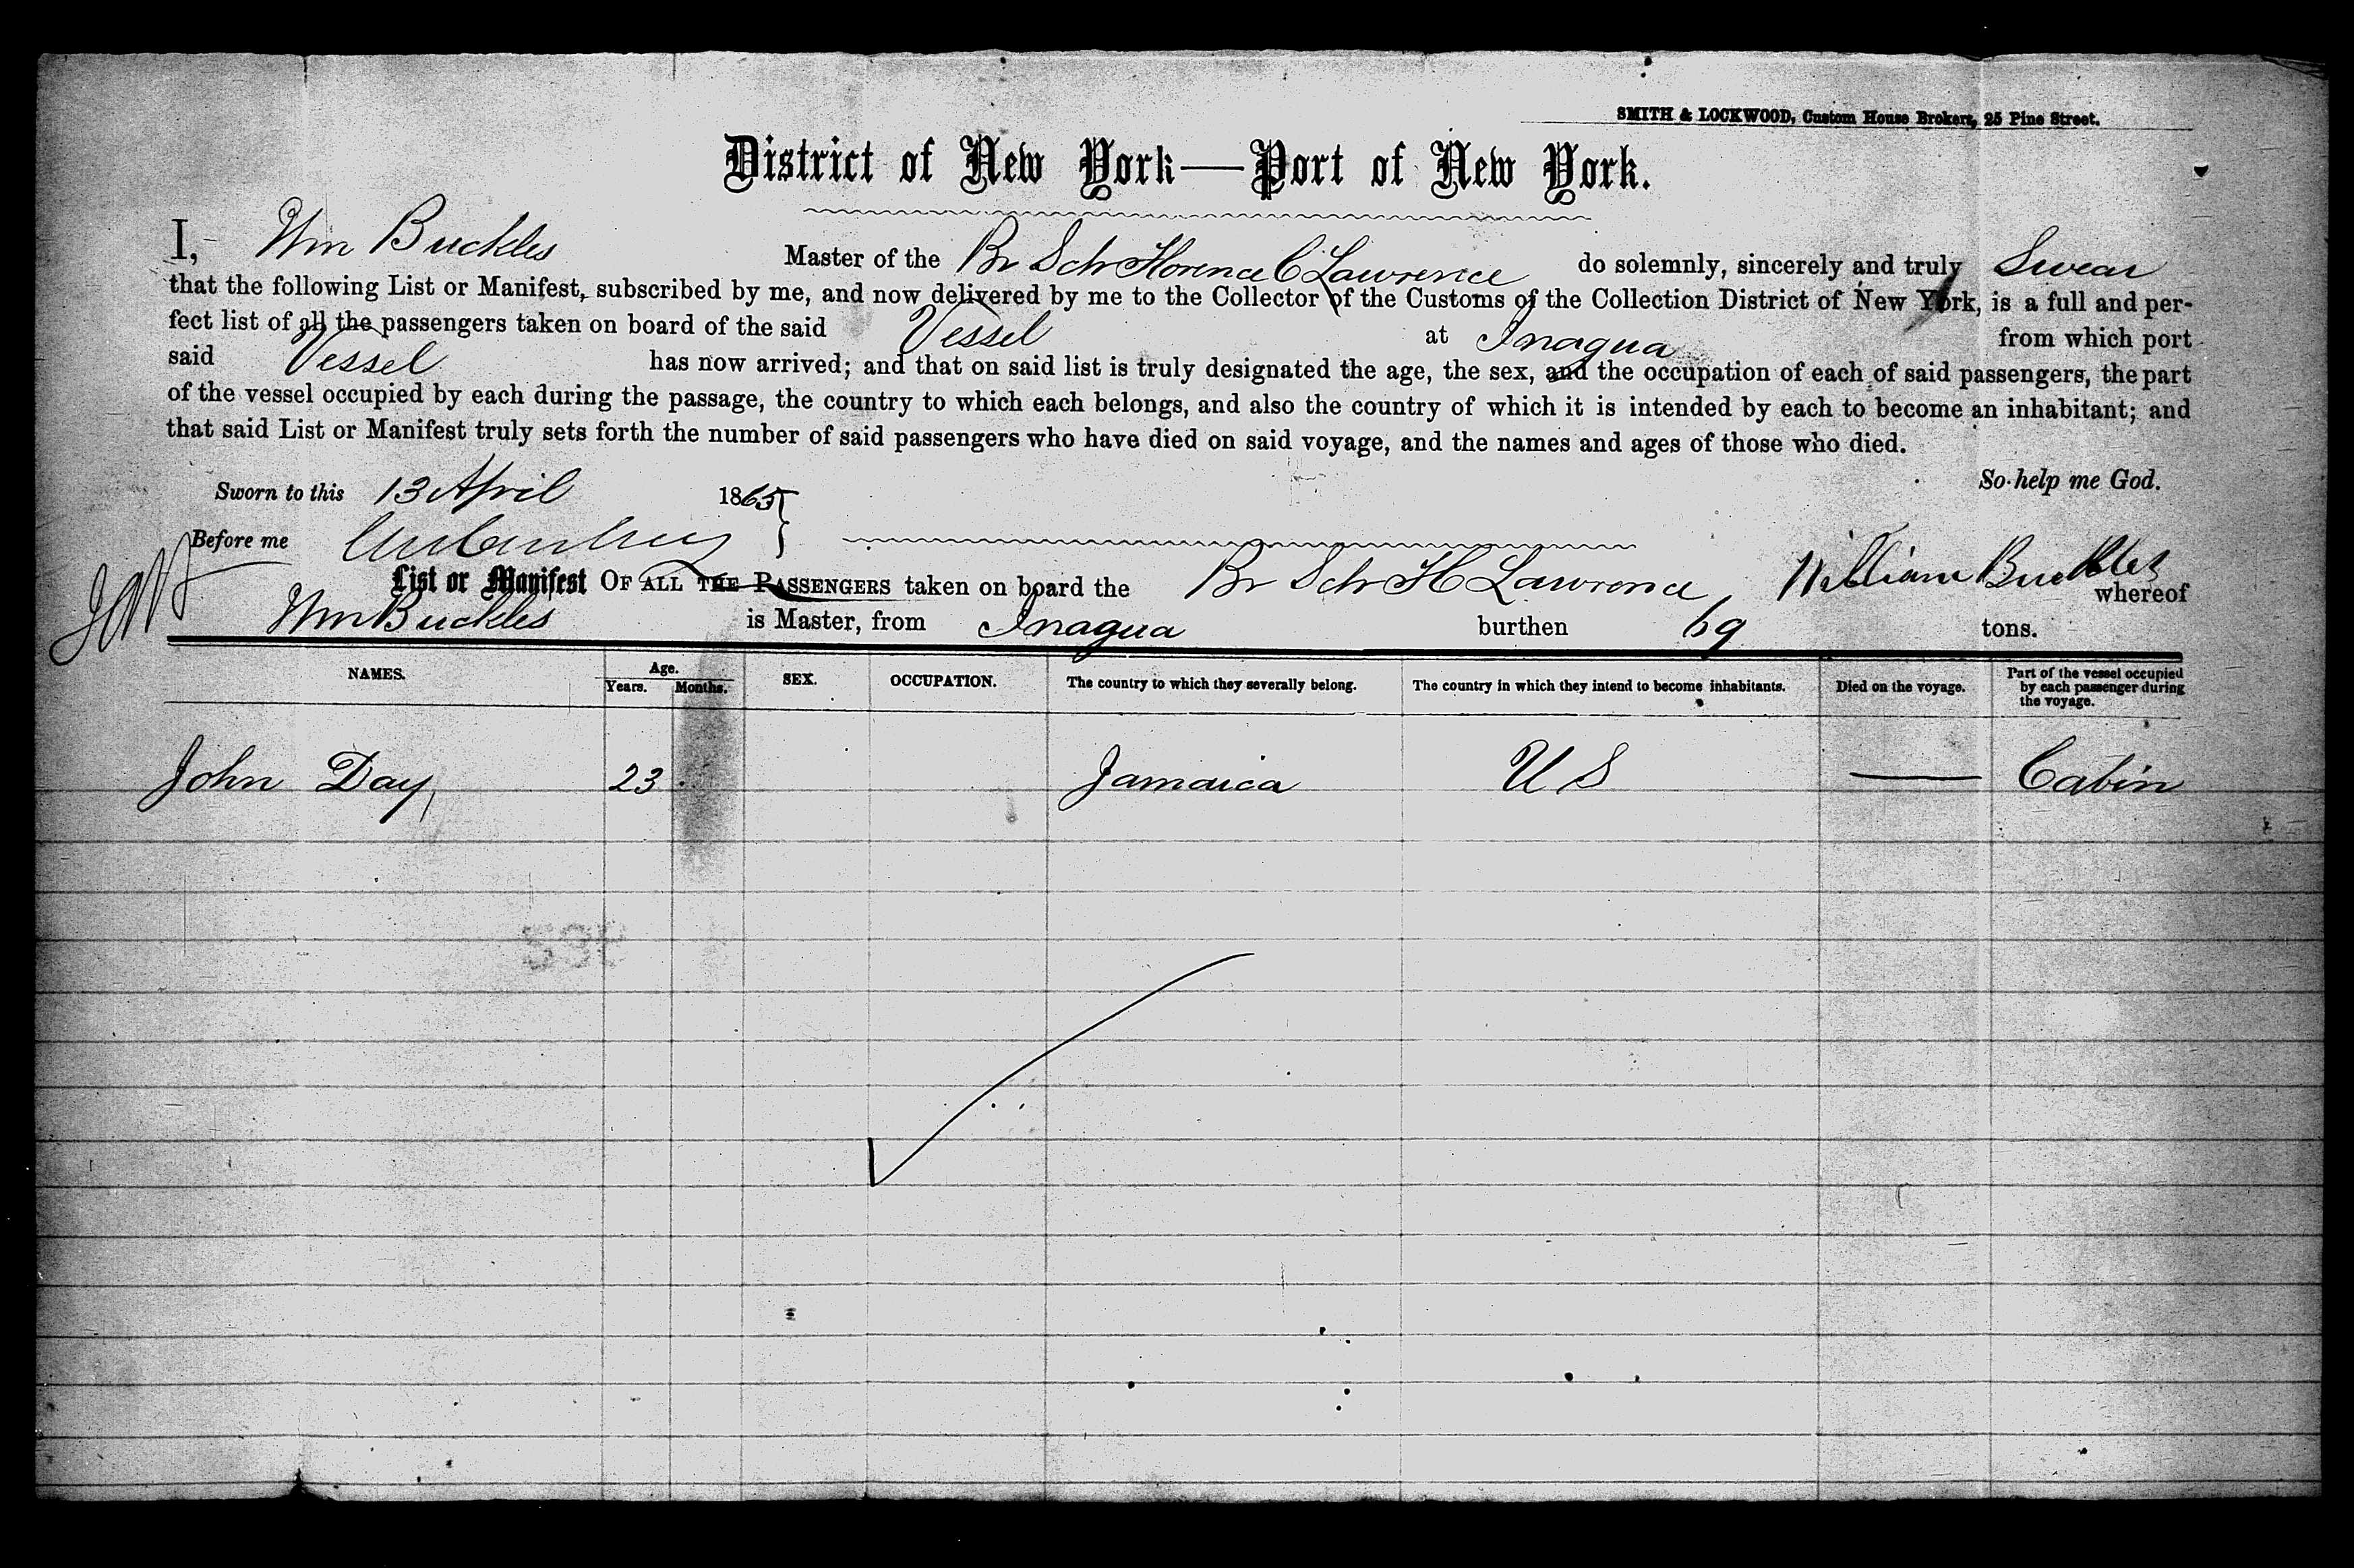 SMITH & LOCKWOOD, Custom House Brokers, 25 Pine Street.
District of New York—Port of New York.
I, Wm Buckles Master of the Br Schr Florence C Lawrence do solemnly, sincerely and truly Swear
that the following List or Manifest, subscribed by me, and now delivered by me to the Collector of the Customs of the Collection District of New York, is a full and per-
fect list of all the passengers taken on board of the said Vessel at Inagua from which port
said Vessel has now arrived; and that on said list is truly designated the age, the sex, and the occupation of each of said passengers, the part
of the vessel occupied by each during the passage, the country to which each belongs, and also the country of which it is intended by each to become an inhabitant; and
that said List or Manifest truly sets forth the number of said passengers who have died on said voyage, and the names and ages of those who died.
So help me God.
Sworn to this 13 April 1865
Before me
William Buckles
List or Manifest OF ALL THE PASSENGERS taken on board the Br Schr H Lawrence whereof
Wm Buckles is Master, from Inagua burthen 69 tons.
NAMES. Age. Years. Months. SEX. OCCUPATION. The country to which they severally belong. The country in which they intend to become inhabitants. Died on the voyage. Part of the vessel occupied by each passenger during the voyage.
John Day 23 Jamaica U S — Cabin